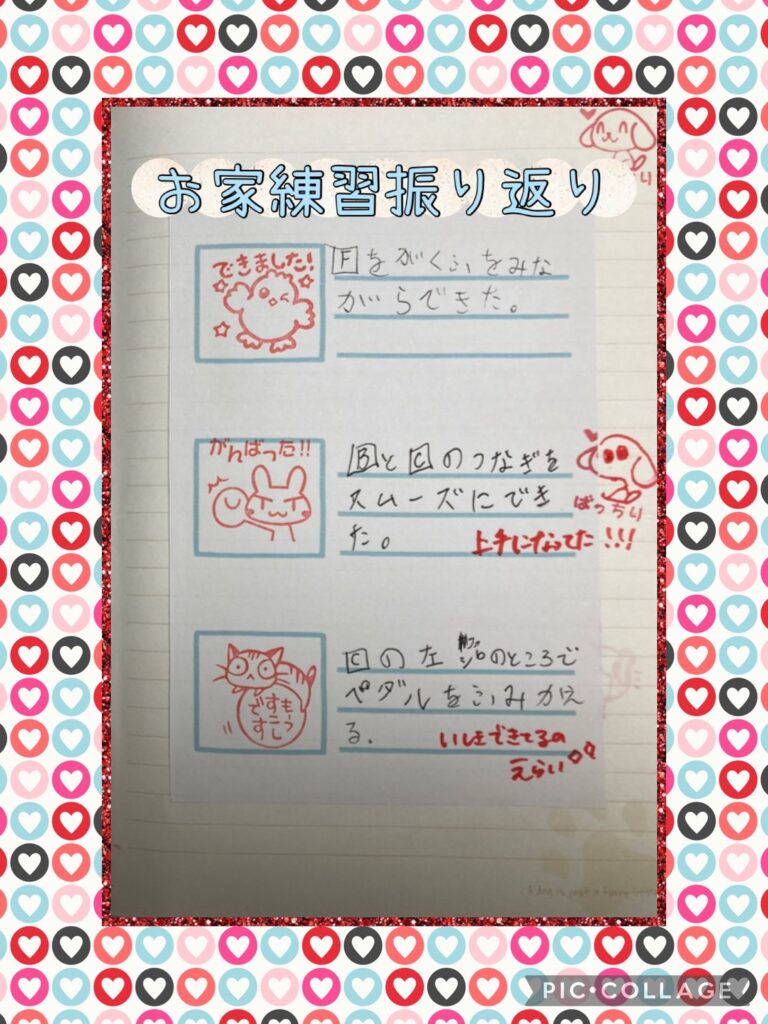 お家練習振り返り
できました!
Fをがくふをみな
がらできた。
がんばった!!
BとCのつなぎを
スムーズにでき
た。
ばっちり
上手になってた!!!
もう
すこし
です
Cの左のところで
ペダルをふみかえ
る.
いしきできてるの
えらい
A dog is just a furry
PIC•COLLAGE